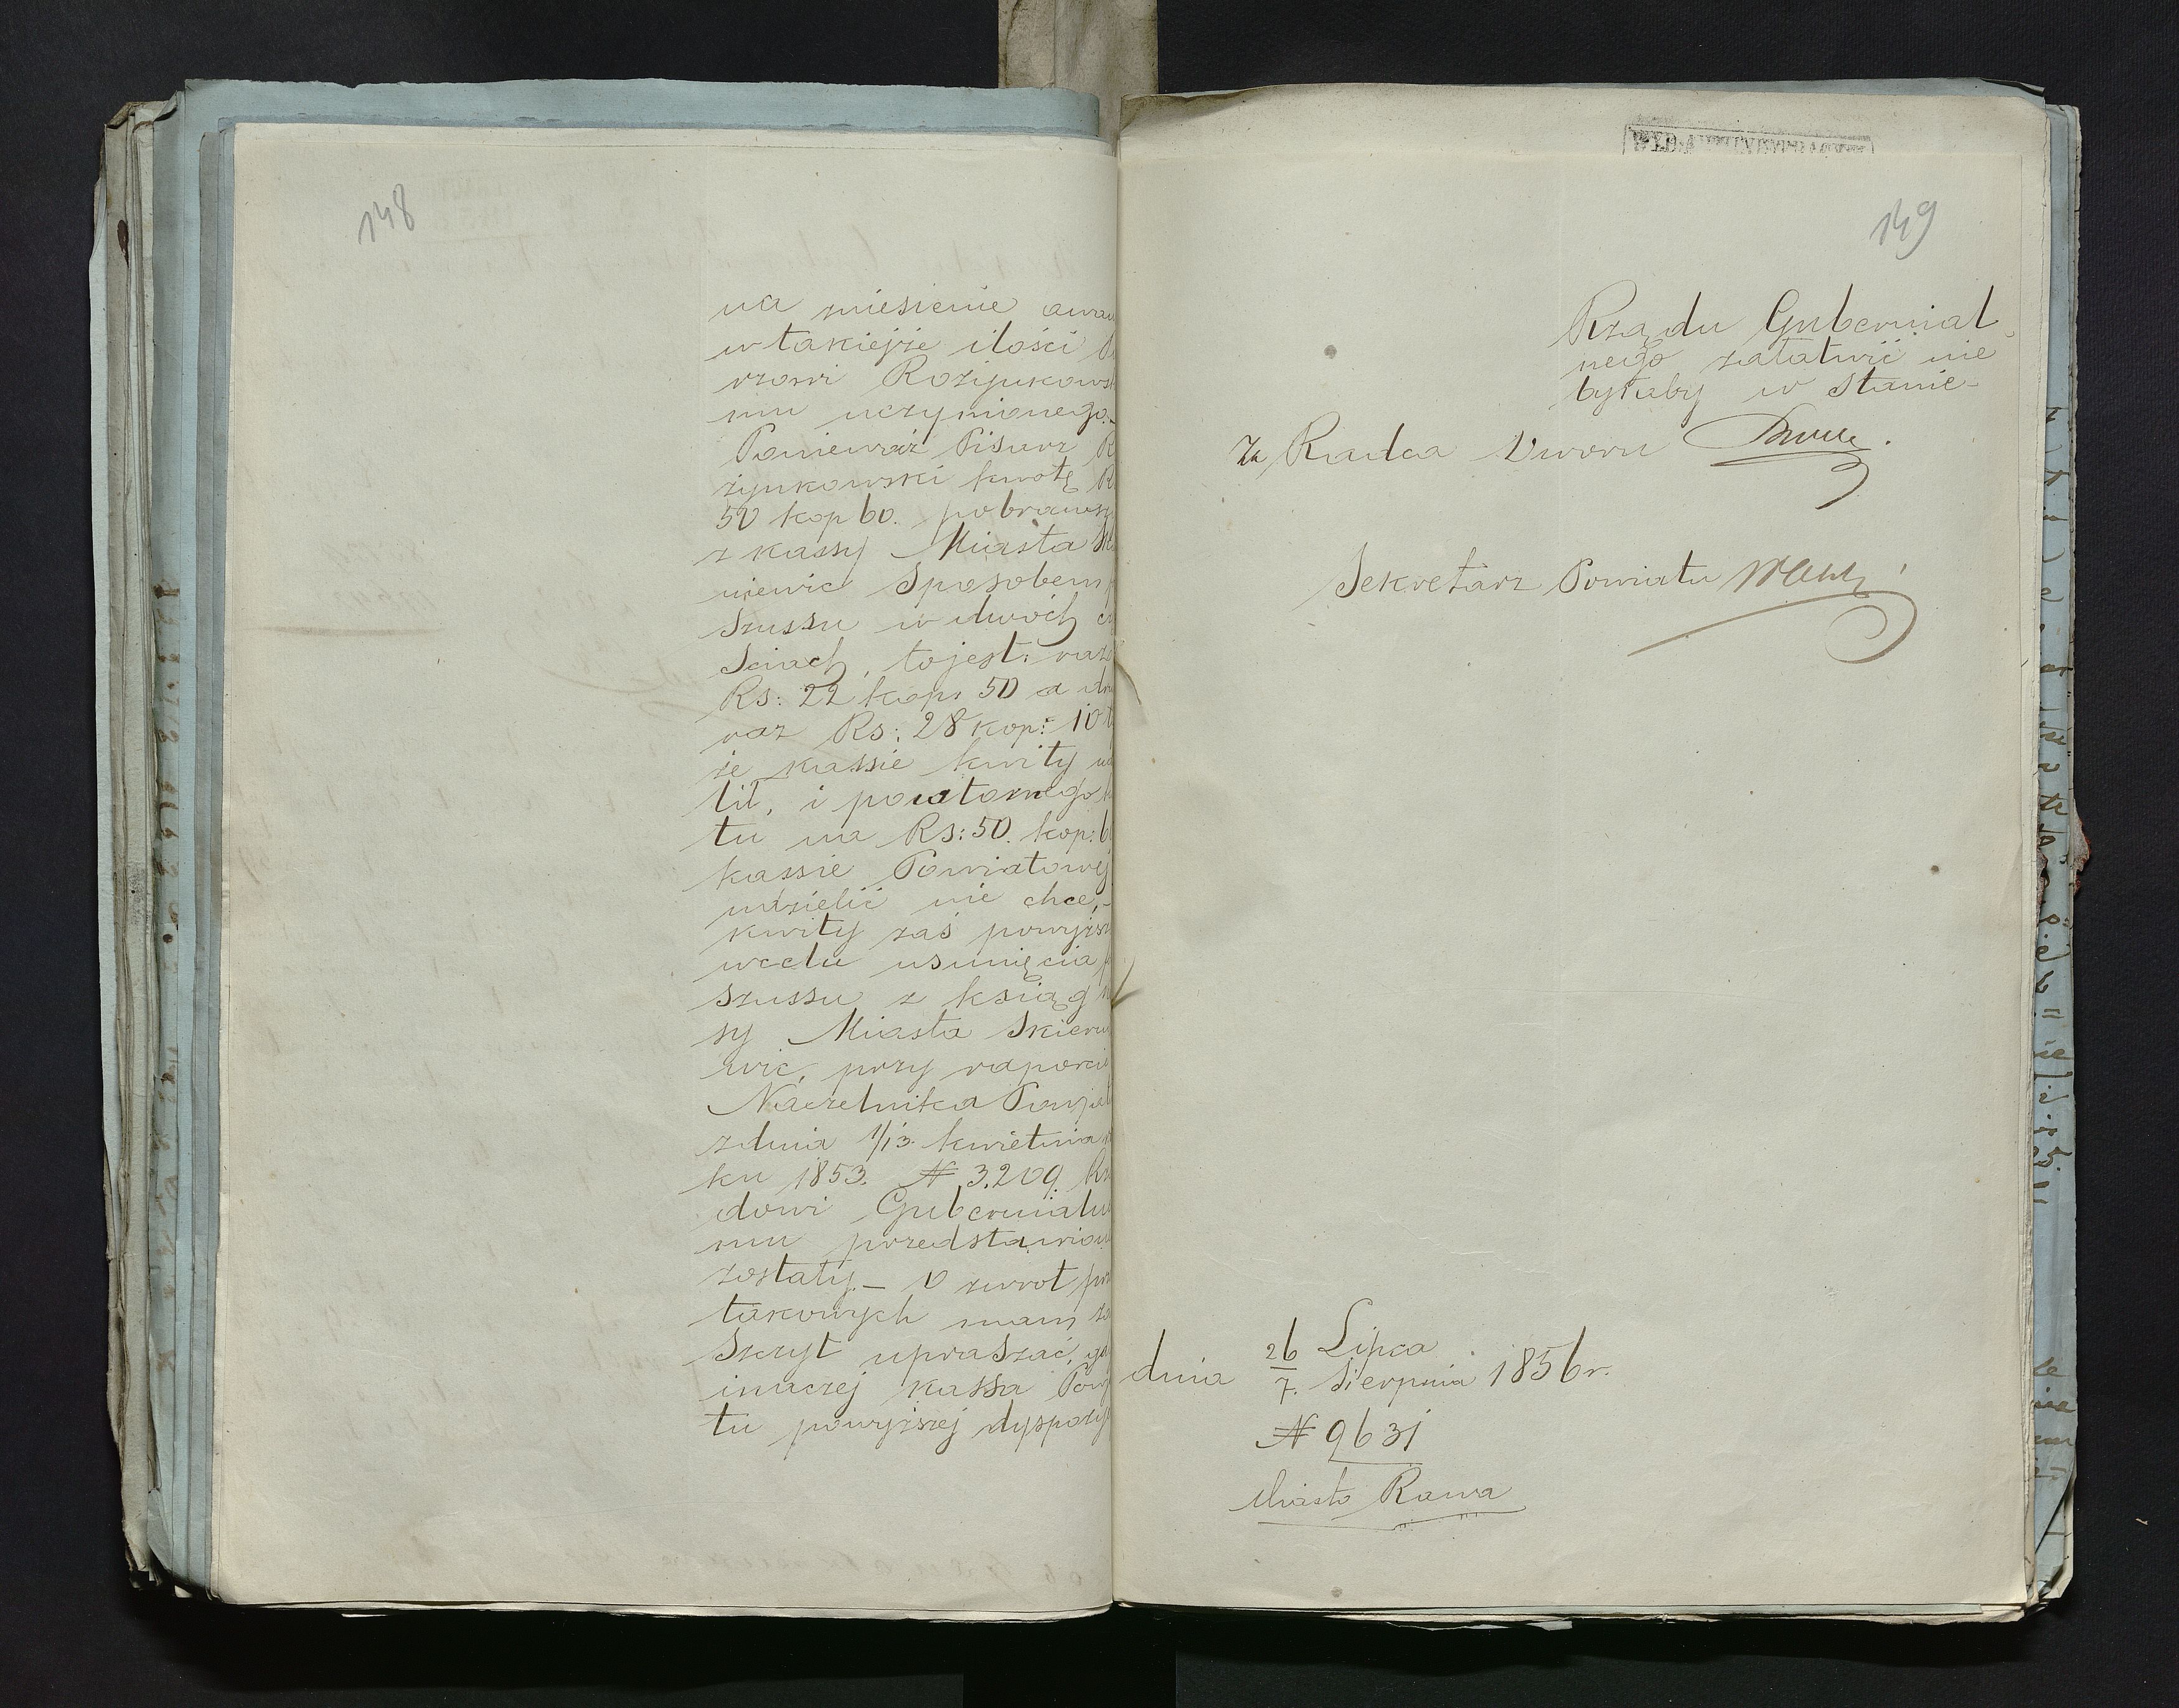 148
na miesienie awan
w takiejże ilości P
rzowi Rożynkowsk
mu uczynionego.-
Ponieważ Pisarz R
żynkowski kwotę R
50 kop 60. pobrawsz
z kassy Miasta Sk
niewic Sposobem
Szussu w dwóch cz
Sciach, tojest: raz
Rs: 22 kop. 50 a dru
raz Rs: 28 kop: 10 t
że kassie kwity
tił, i powtornego k
tu na Rs: 50. kop: 6
kassie Powiatowej
udzielić nie chce,-
kwity zaś powyższ
wcelu usunięcia p
szussu z książg
sy Miasta Skiern
wic, przy raporcie
Naczelnika Powiat
zdnia 1/13. kwietnia r
ku 1853. N 3.209. Rz
dowi Gubernialn
mu przedstawion
zostały.- O zwrot prz
takowych mam za
Szczyt upraszać, gd
inaczej kassa Pow
tu powyższej dyspozy
149
Rządu Gubernial
nego załatwić nie
byłaby w Stanie-
Za Radca Dworu
Sekretarz Powiatu
dnia 26 Lipca
7. Sierpnia 1856 r.
N 9631
Miasto Rawa